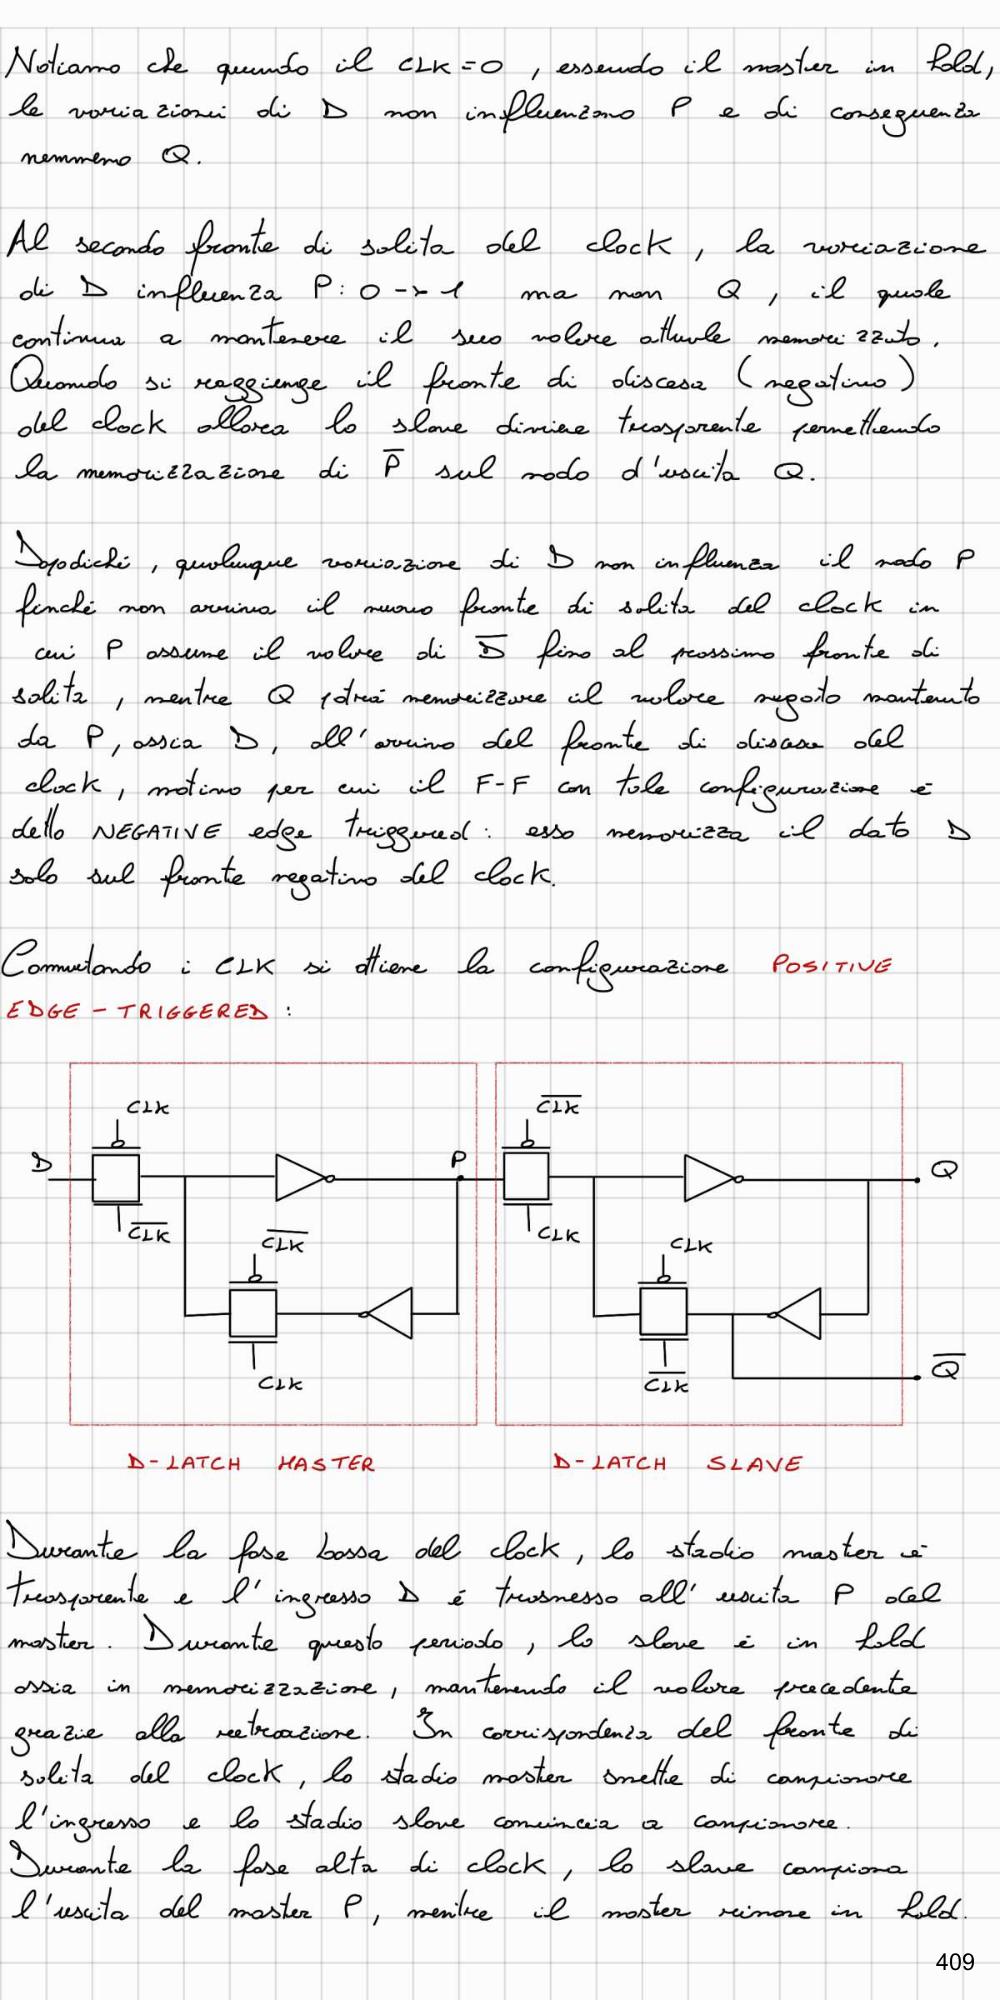 Notiamo che quando il CLK=0, essendo il master in hold,
le variazioni di D non influenzano P e di conseguenza
nemmeno Q.
Al secondo fronte di salita del clock, la variazione
di D influenza P: 0 -> 1 ma non Q, il quale
continua a mantenere il suo valore attuale memorizzato.
Quando si raggiunge il fronte di discesa (negativo)
del clock allora lo slave diviene trasparente permettendo
la memorizzazione di P̅ sul nodo d'uscita Q.
Dopodiché, qualunque variazione di D non influenza il nodo P
finché non arriva il nuovo fronte di salita del clock in
cui P assume il valore di D̅ fino al prossimo fronte di
salita, mentre Q potrà memorizzare il valore negato mantenuto
da P, ossia D, all'arrivo del fronte di discesa del
clock, motivo per cui il F-F con tale configurazione è
detto NEGATIVE edge triggered: esso memorizza il dato D
solo sul fronte negativo del clock.
Commutando i CLK si ottiene la configurazione POSITIVE
EDGE-TRIGGERED:
CLK
C̅L̅K̅
D
P
Q
C̅L̅K̅
C̅L̅K̅
CLK
CLK
CLK
C̅L̅K̅
Q̅
D-LATCH MASTER
D-LATCH SLAVE
Durante la fase bassa del clock, lo stadio master è
trasparente e l'ingresso D è trasmesso all'uscita P del
master. Durante questo periodo, lo slave è in hold
ossia in memorizzazione, mantenendo il valore precedente
grazie alla retroazione. In corrispondenza del fronte di
salita del clock, lo stadio master smette di campionare
l'ingresso e lo stadio slave comincia a campionare.
Durante la fase alta di clock, lo slave campiona
l'uscita del master P, mentre il master rimane in hold.
409